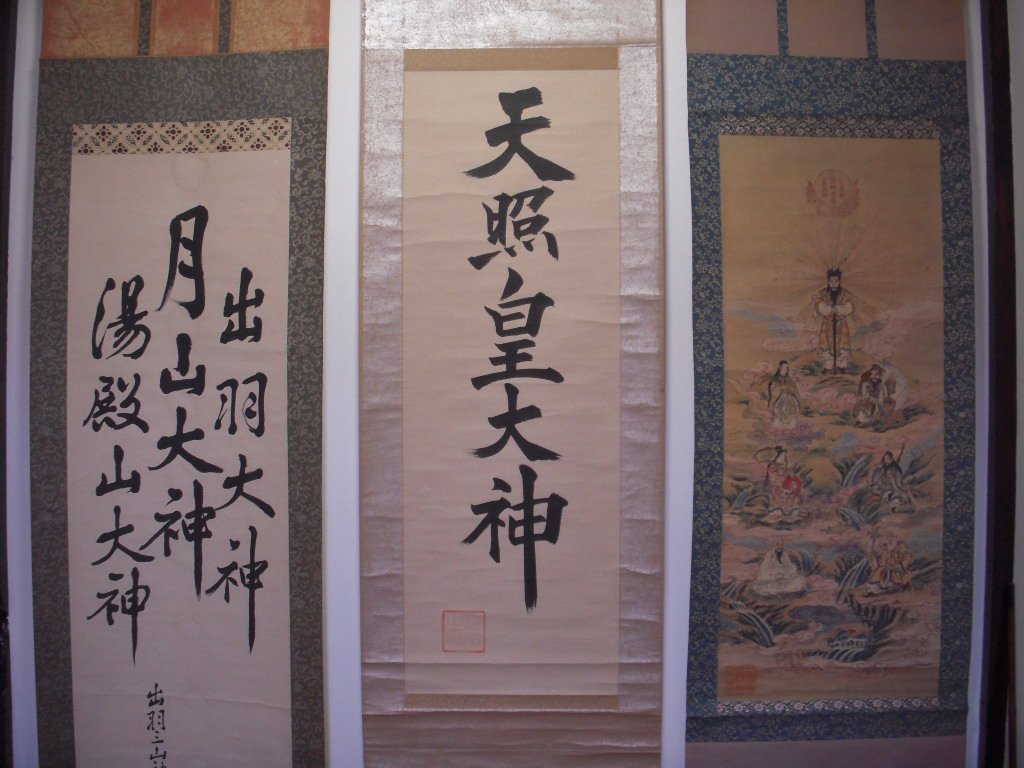 天照皇大神
出羽大神
月山大神
湯殿山大神
出羽三山神